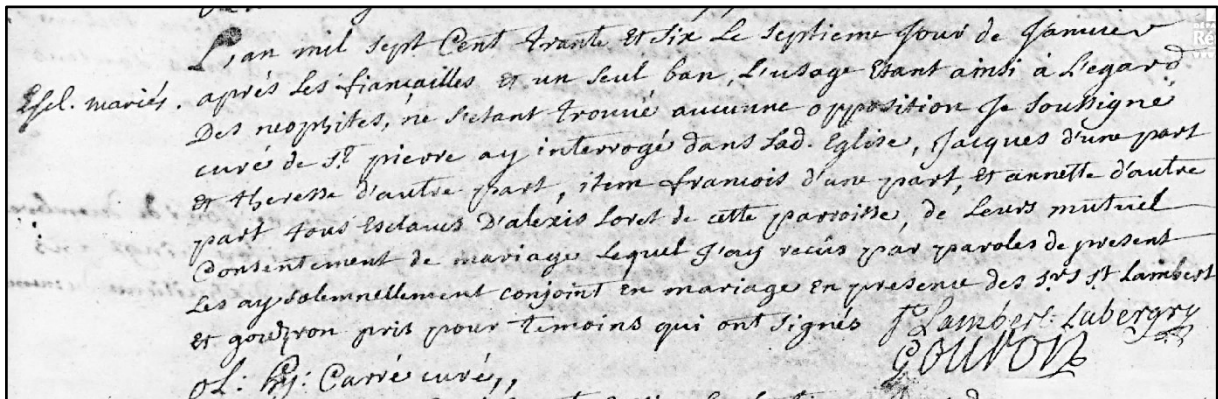 L'an mil sept Cent trante et Six Le Septieme Jour de Janvier
Escl. mariés. aprés Les fiançailles et un Seul ban, L'usage Etant ainsi a L'egard
Des neophites, ne s'etant trouvé aucunne opposition Je Soussigné
curé de St. pierre ay interrogé dans Lad. Eglise, Jacques d'une part
et theresse d'autre part, item francois d'une part, et annette d'autre
part tous Esclaves D'alexis Loret de cette parroisse, de Leurs mutuel
Consentement de mariage Lequel J'ay recûs par paroles de present
Les ay solemnellement conjoint en mariage en presence des Srs. St Lambert
et pris pour temoins qui ont Signés Lambert. Labergry
Carré curé,,